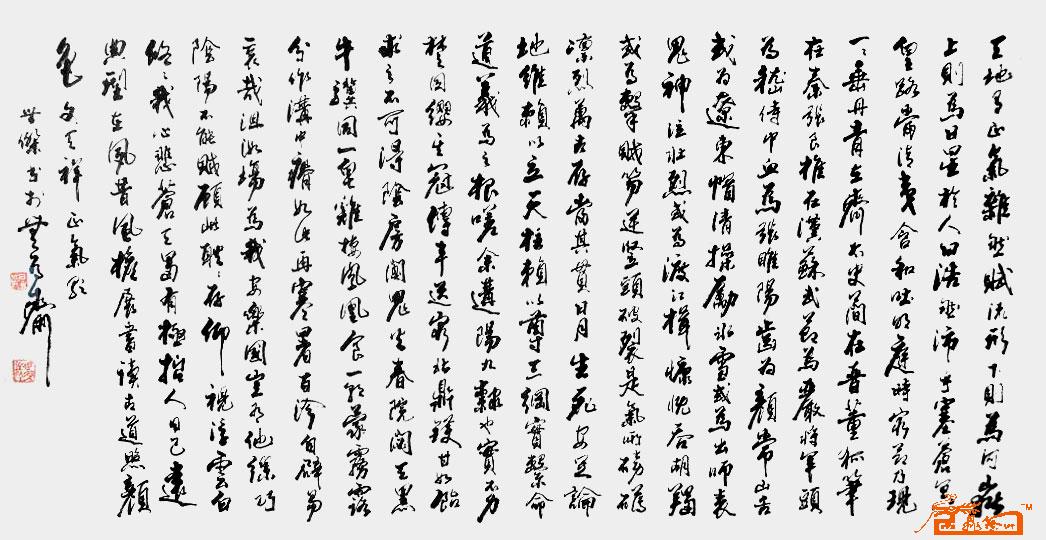 天地有正氣雜然賦流形下則為河嶽
上則為日星於人曰浩然沛乎塞蒼冥
皇路當清夷含和吐明庭時窮節乃現
一一垂丹青在齊太史簡在晉董狐筆
在秦張良椎在漢蘇武節為嚴將軍頭
為嵇侍中血為張睢陽齒為顏常山舌
或為遼東帽清操勵冰雪或為出師表
鬼神泣壯烈或為渡江楫慷慨吞胡羯
或為擊賊笏逆豎頭破裂是氣所磅礴
凛烈萬古存當其貫日月生死安足論
地維賴以立天柱賴以尊三綱實繫命
道義為之根嗟余遘陽九隸也實不力
楚囚纓其冠傳車送窮北鼎鑊甘如飴
求之不可得陰房闃鬼火春院閟天黑
牛驥同一皂雞棲鳳凰食一朝蒙霧露
分作溝中瘠如此再寒暑百沴自辟易
哀哉沮洳場為我安樂國豈有他繆巧
陰陽不能賊顧此耿耿存仰視浮雲白
悠悠我心悲蒼天曷有極哲人日已遠
典型在夙昔風檐展書讀古道照顏
色 文天祥正氣歌
世傑書於齋